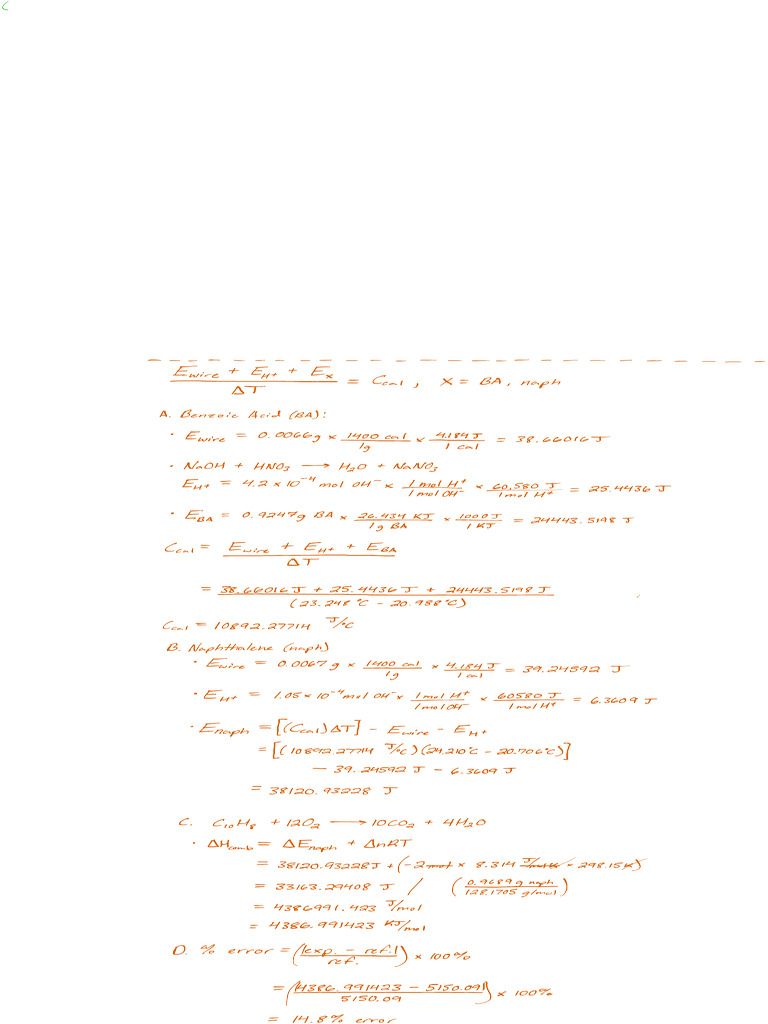 (E_wire + E_H+ + E_x) / ΔT = C_cal, X = BA, naph
A. Benzoic Acid (BA):
• E_wire = 0.0066g × 1400 cal / 1g × 4.184 J / 1 cal = 38.66016 J
• NaOH + HNO₃ → H₂O + NaNO₃
E_H+ = 4.2 × 10⁻⁴ mol OH⁻ × 1 mol H⁺ / 1 mol OH⁻ × 60,580 J / 1 mol H⁺ = 25.4436 J
• E_BA = 0.9247g BA × 26.434 KJ / 1 g BA × 1000 J / 1 KJ = 24443.5198 J
C_cal = (E_wire + E_H+ + E_BA) / ΔT
= (38.66016 J + 25.4436 J + 24443.5198 J) / (23.248 °C - 20.988 °C)
C_cal = 10892.27714 J/°C
B. Naphthalene (naph)
• E_wire = 0.0067 g × 1400 cal / 1g × 4.184 J / 1 cal = 39.24592 J
• E_H+ = 1.05 × 10⁻⁴ mol OH⁻ × 1 mol H⁺ / 1 mol OH⁻ × 60580 J / 1 mol H⁺ = 6.3609 J
• E_naph = [(C_cal) ΔT] - E_wire - E_H+
= [(10892.27714 J/°C)(24.210°C - 20.706°C)]
- 39.24592 J - 6.3609 J
= 38120.93228 J
C. C₁₀H₈ + 12O₂ → 10CO₂ + 4H₂O
• ΔH_comb = ΔE_naph + ΔnRT
= 38120.93228 J + (-2 mol × 8.314 J/mol·K × 298.15 K)
= 33163.29408 J / (0.9689 g naph / 128.1705 g/mol)
= 4386991.423 J/mol
= 4386.991423 KJ/mol
D. % error = (|exp. - ref.| / ref.) × 100%
= (|4386.991423 - 5150.09| / 5150.09) × 100%
= 14.8% error